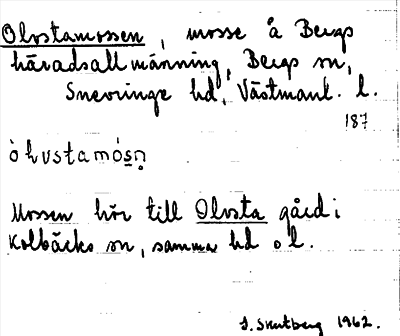 Olvstamossen, mosse å Bergs
häradsallmänning, Bergs sn,
Snevringe hd, Västmanl. l.
187
òlvstamós̲n̥
Mossen hör till Olvsta gård i
Kolbäcks sn, samma hd o l.
S. Skutberg 1962.